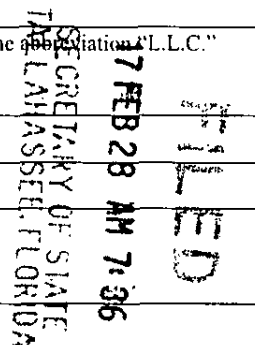 ne abbreviation "L.L.C."
FILED
7 FEB 28 AM 7:36
SECRETARY OF STATE
TALLAHASSEE, FLORIDA